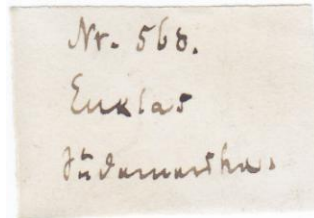 Nr. 568.
Euklas
Südamerika.